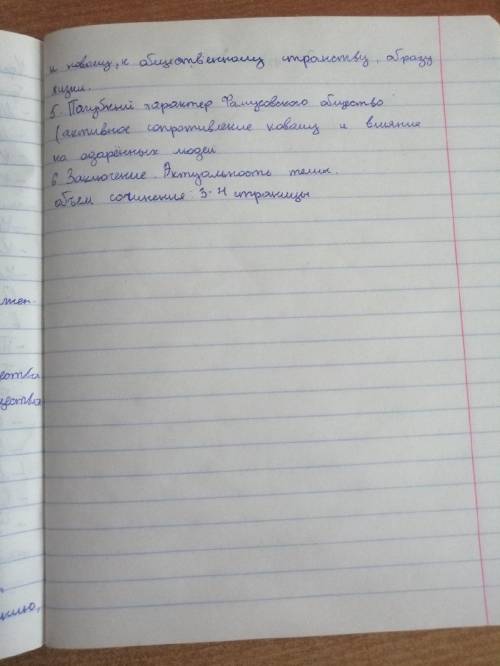 к новому, к общественному странству, образу
жизни.
5. Пагубный характер Фамусовского общество
(активное сопротивление новому и влияние
на одарённых людей
6. Заключение. Актуальность темы.
объем сочинения: 3-4 страницы